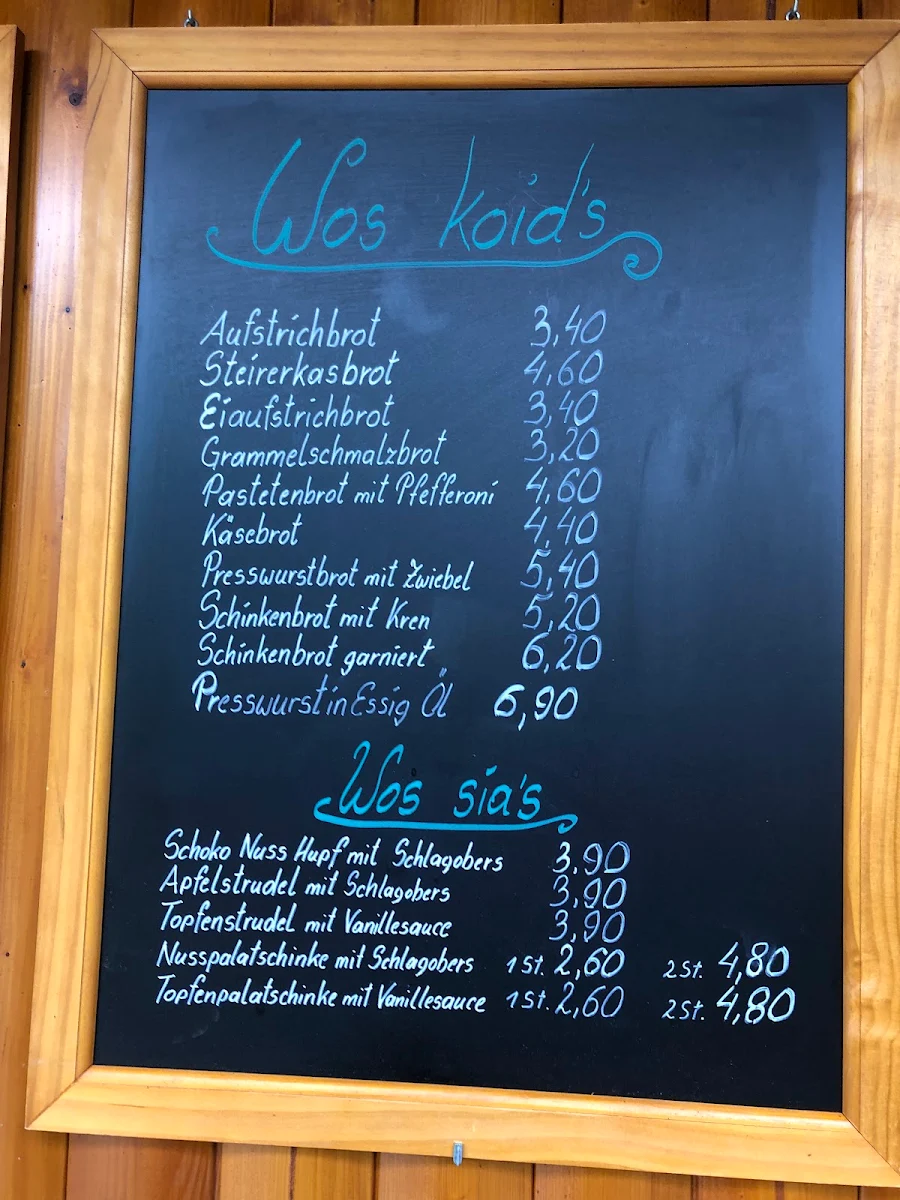 Wos koid's
Aufstrichbrot 3,40
Steirerkasbrot 4,60
Eiaufstrichbrot 3,40
Grammelschmalzbrot 3,20
Pastetenbrot mit Pfefferoni 4,60
Käsebrot 4,40
Presswurstbrot mit Zwiebel 5,40
Schinkenbrot mit Kren 5,20
Schinkenbrot garniert 6,20
Presswurst in Essig Öl 6,90
Wos sia's
Schoko Nuss Hupf mit Schlagobers 3,90
Apfelstrudel mit Schlagobers 3,90
Topfenstrudel mit Vanillesauce 3,90
Nusspalatschinke mit Schlagobers 1 St. 2,60 2 St. 4,80
Topfenpalatschinke mit Vanillesauce 1 St. 2,60 2 St. 4,80